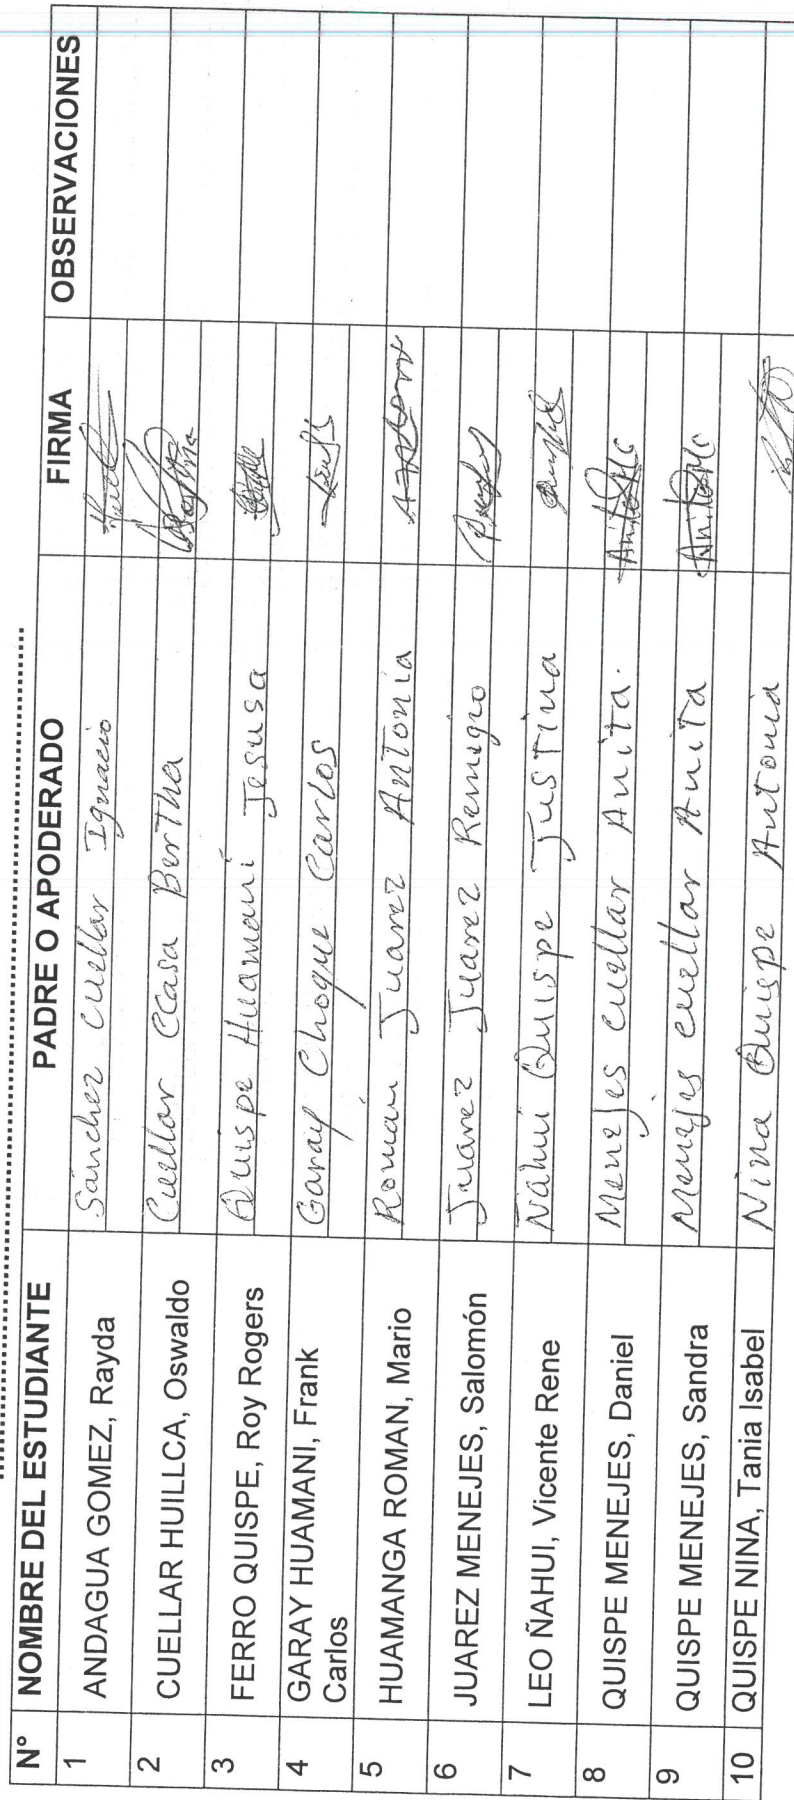 N° NOMBRE DEL ESTUDIANTE PADRE O APODERADO FIRMA OBSERVACIONES
1 ANDAGUA GOMEZ, Rayda Sánchez Cuellar Ignacio
2 CUELLAR HUILLCA, Oswaldo Cuellar Ccasa Bertha
3 FERRO QUISPE, Roy Rogers Quispe Huamani Jesusa
4 GARAY HUAMANI, Frank Carlos Garay Choque Carlos
5 HUAMANGA ROMAN, Mario Roman Juarez Antonia
6 JUAREZ MENEJES, Salomón Juárez Juarez Remigio
7 LEO ÑAHUI, Vicente Rene Ñahui Quispe Justina
8 QUISPE MENEJES, Daniel Menejes cuellar Anita.
9 QUISPE MENEJES, Sandra Menejes cuellar Anita
10 QUISPE NINA, Tania Isabel Nina Quispe Antonia